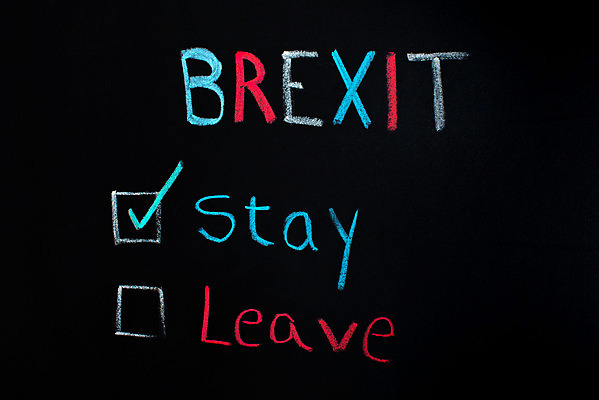 BREXIT
Stay
Leave